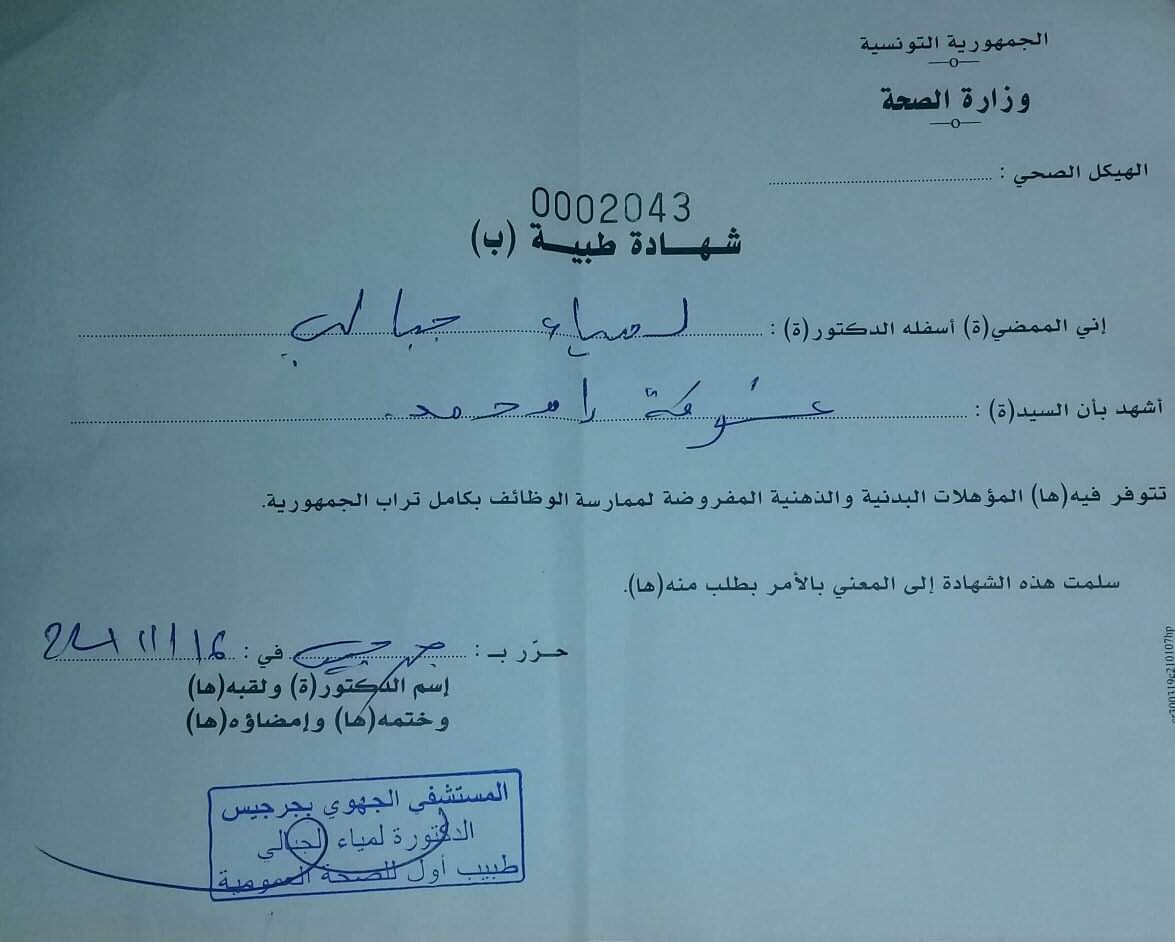 الجمهورية التونسية
وزارة الصحة
الهيكل الصحي :
0002043
شهادة طبية (ب)
إني الممضي(ة) أسفله الدكتور(ة) : لمياء جبالي
أشهد بأن السيد(ة) :
تتوفر فيه(ها) المؤهلات البدنية والذهنية المفروضة لممارسة الوظائف بكامل تراب الجمهورية.
سلمت هذه الشهادة إلى المعني بالأمر بطلب منه(ها).
حرّر بـ : جرجيس في :
إسم الدكتور(ة) ولقبه(ها)
وختمه(ها) وإمضاؤه(ها)
المستشفى الجهوي بجرجيس
الدكتورة لمياء الجبالي
طبيب أول للصحة العمومية